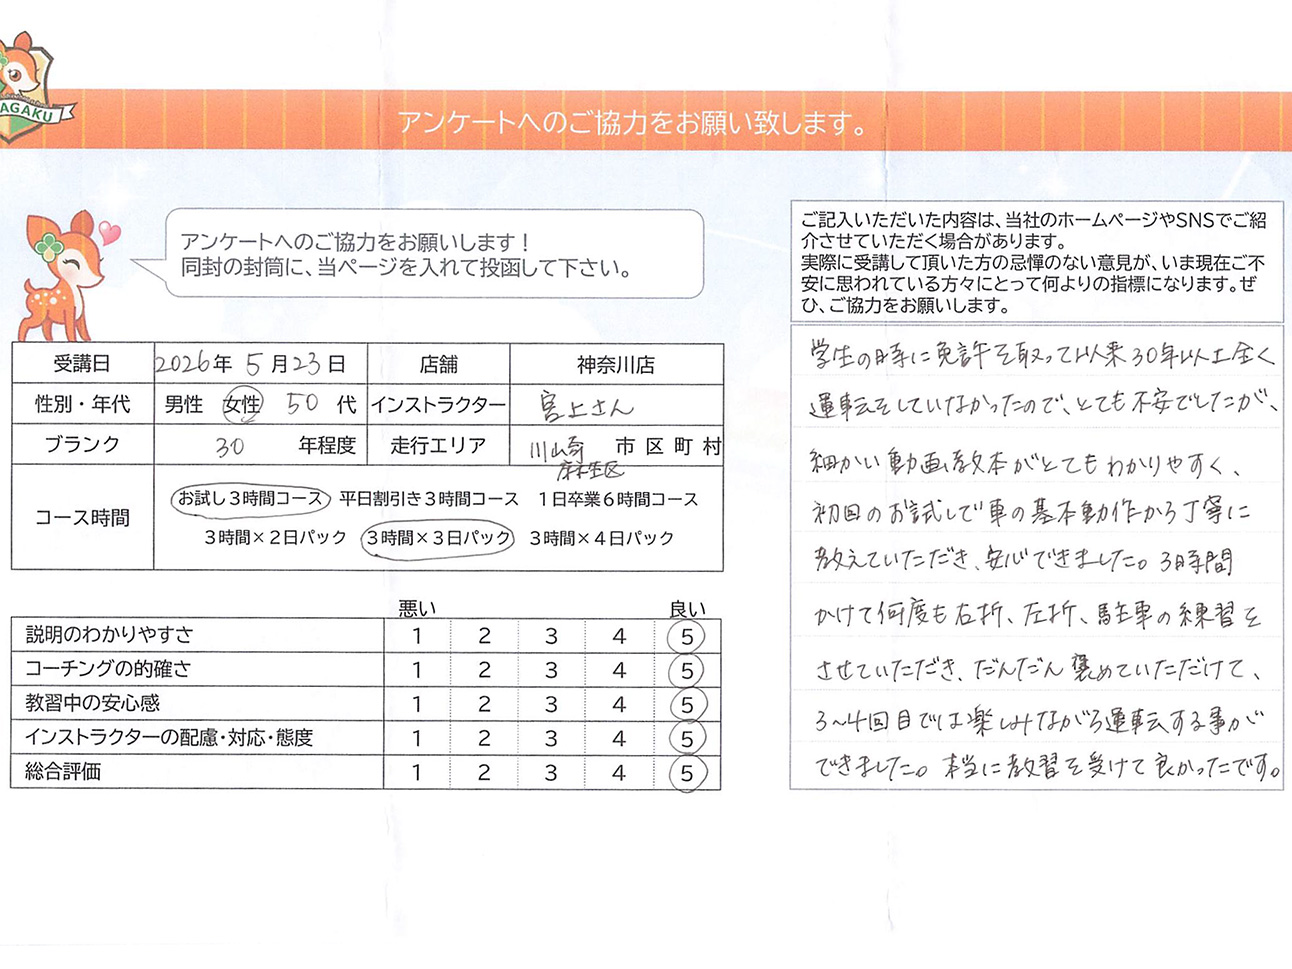 AGAKU
アンケートへのご協力をお願い致します。
アンケートへのご協力をお願いします！
同封の封筒に、当ページを入れて投函して下さい。
受講日 2026年 5月23日 店舗 神奈川店
性別・年代 男性 女性 50代 インストラクター 宮上さん
ブランク 30 年程度 走行エリア 川崎 市区町村
麻生区
コース時間 お試し3時間コース 平日割引き3時間コース 1日卒業6時間コース
3時間×2日パック 3時間×3日パック 3時間×4日パック
悪い 良い
説明のわかりやすさ 1 2 3 4 5
コーチングの的確さ 1 2 3 4 5
教習中の安心感 1 2 3 4 5
インストラクターの配慮・対応・態度 1 2 3 4 5
総合評価 1 2 3 4 5
ご記入いただいた内容は、当社のホームページやSNSでご紹
介させていただく場合があります。
実際に受講して頂いた方の忌憚のない意見が、いま現在ご不
安に思われている方々にとって何よりの指標になります。ぜ
ひ、ご協力をお願いします。
学生の時に免許を取って以来30年以上全く
運転をしていなかったので、とても不安でしたが、
細かい動画教本がとてもわかりやすく、
初回のお試しで車の基本動作から丁寧に
教えていただき、安心できました。3時間
かけて何度も右折、左折、駐車の練習を
させていただき、だんだん褒めていただけて、
3〜4回目では楽しみながら運転する事が
できました。本当に教習を受けて良かったです。